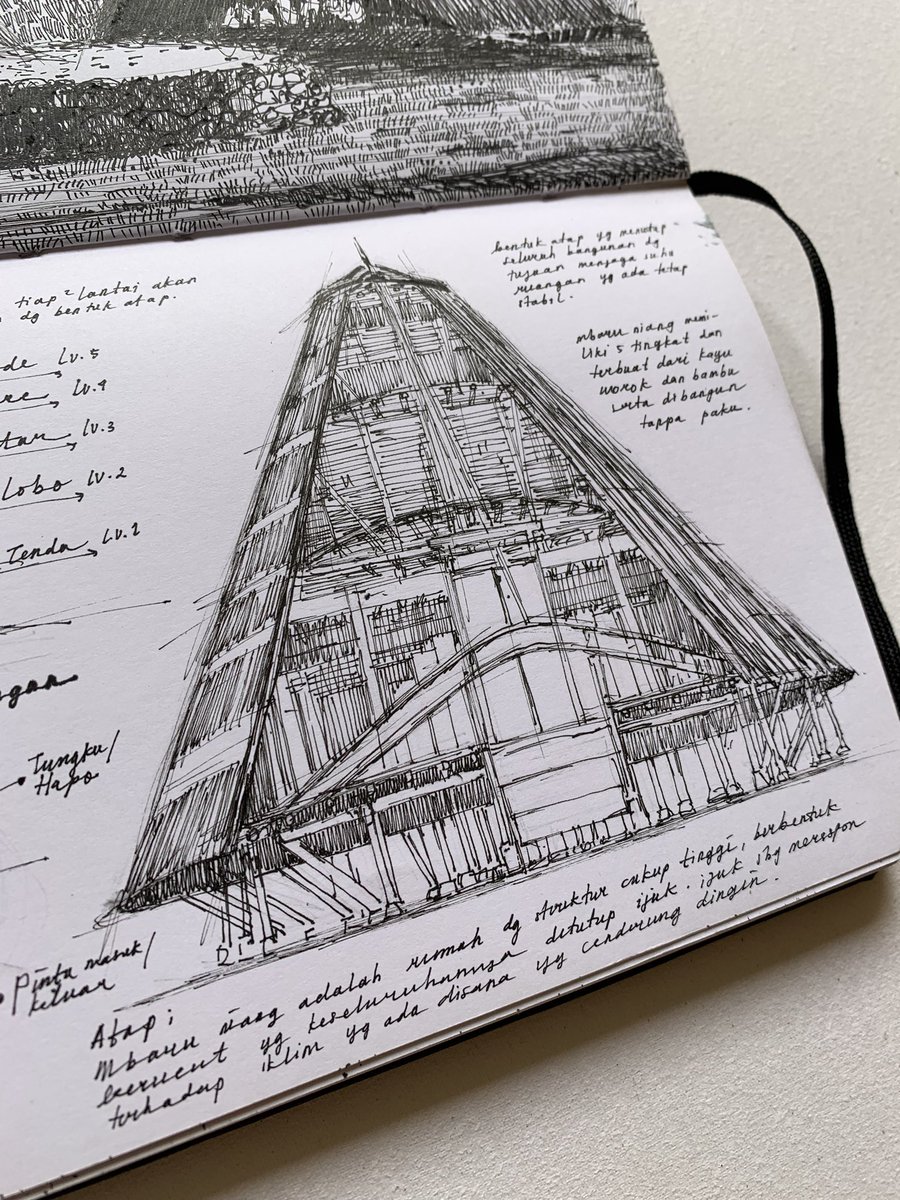 tiap² lantai akan
dg bentuk atap.
de Lv.5
re Lv.4
tar Lv.3
Lobo Lv.2
Tenda Lv.1
ngan
Tungku/
Hapo
Pintu masuk/
keluar
bentuk atap yg menutup
seluruh bangunan dg
tujuan menjaga suhu
ruangan yg ada tetap
stabil.
mbaru niang memi-
liki 5 tingkat dan
terbuat dari kayu
worok dan bambu
serta dibangun
tanpa paku.
Atap:
Mbaru niang adalah rumah dg struktur cukup tinggi, berbentuk
kerucut yg keseluruhannya ditutup ijuk. ijuk sbg merespon
terhadap iklim yg ada disana yg cenderung dingin.